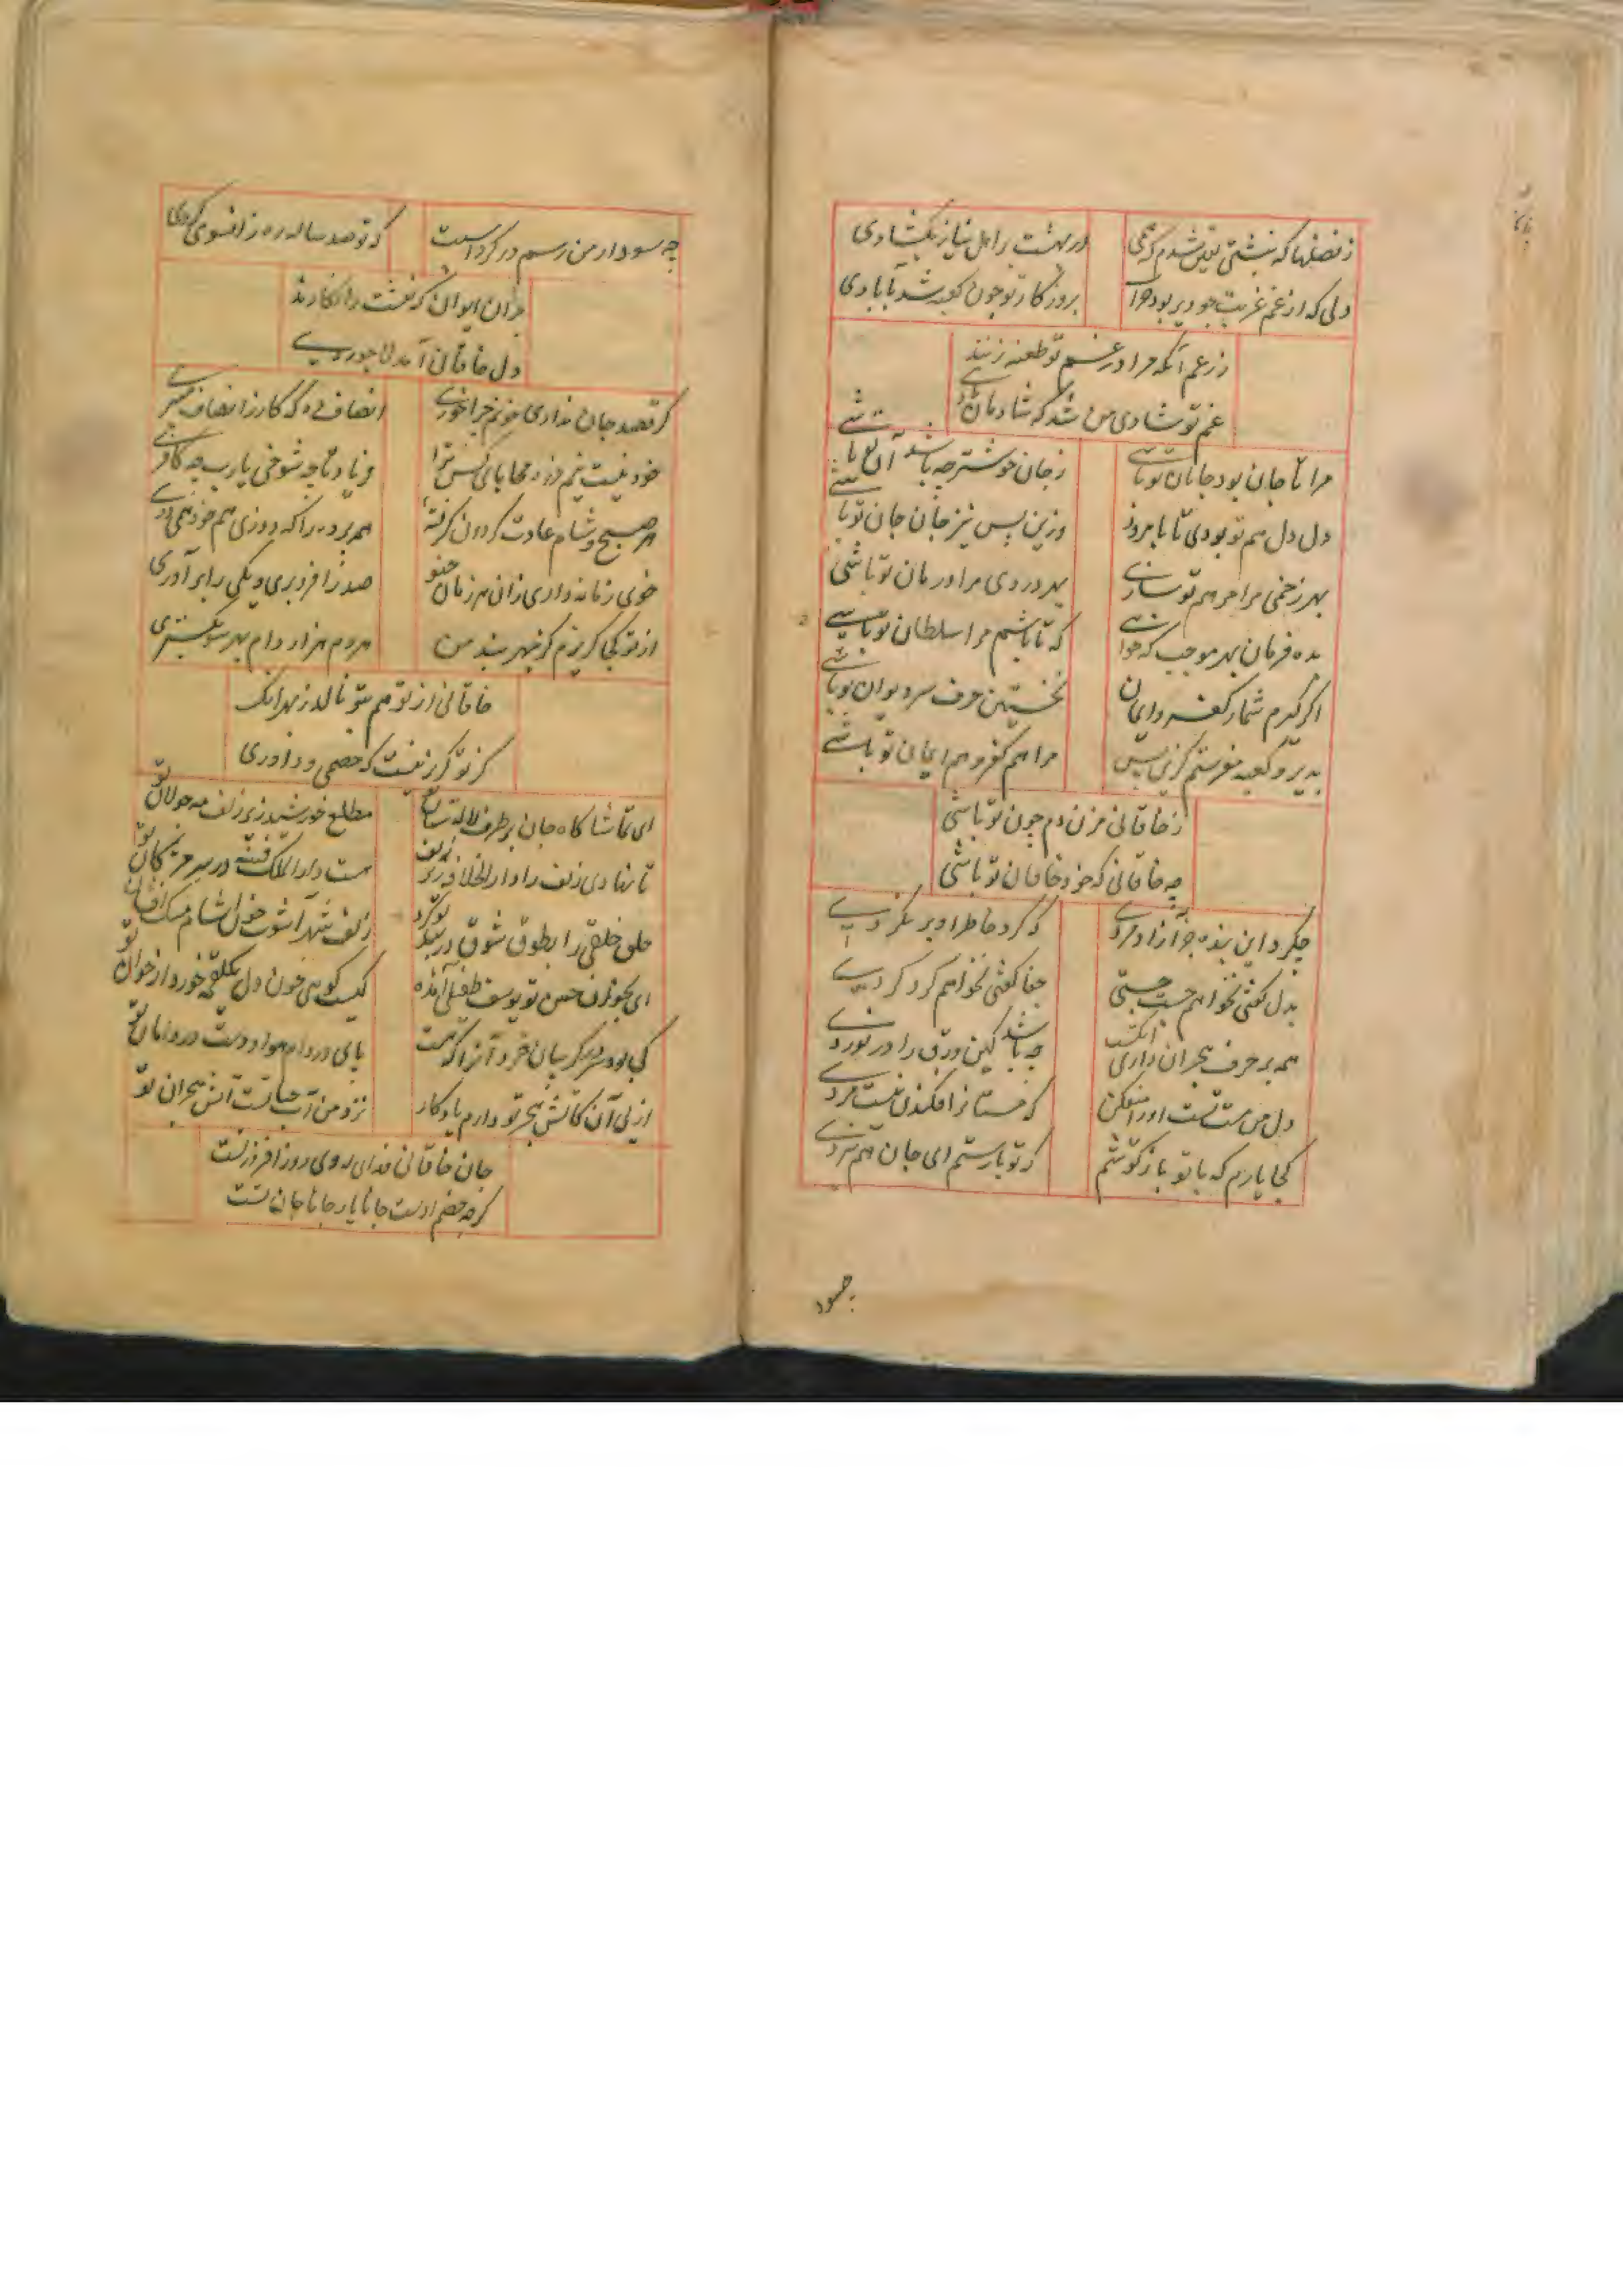 ز فصلها که نبشتی یقین شدم که همی
در بهشت بر اهل نیاز بگشادی
دلی که از غم غربت چو دیر بود خراب
بروزکار تو چون کعبه شد بآبادی
ز رغم آنکه مرا در غم تو طعنه زنند
غم تو شادی من شد که شادمان
مرا تا جان بود جانان تو باشی
ز جان خوشتر چه باشد آن تو باشی
دل دل هم تو بودی تا بامروز
وزین پس نیز جان جان تو باشی
بهر زخمی مرا مرهم تو سازی
بهر دردی مرا درمان تو باشی
بده فرمان بهر موجب که خواهی
که تا باشم مرا سلطان تو باشی
اگر گیرم شمار کفر و ایمان
نخستین حرف سر دیوان تو باشی
بدیر و کعبه مفرستم کزین پس
مرا هم کفر و هم ایمان تو باشی
ز خاقانی مزن دم چون تو باشی
چه خاقانی که خود خاقان تو باشی
چکرد این بنده جز آزادمردی
که گرد خاطر او بر نگردی
بدل گفتی نخواهم جست جستی
جفا گفتی نخواهم کرد کردی
همه بر حرف هجران داری انگشت
چه باشد کین ورق را در نوردی
دل من مست تست او را میفکن
که مستانرا فکندن نیست مردی
کجا یارم که با تو باز کوشم
که تو با رستم ای جان هم نبردی
چه سود
چه سود ار من رسم در گرد اسبت
که تو صد ساله ره ز انسوی گردی
بران ایوان کزنفست را نگارند
دل خاقانی آمد لاجوردی
گر قصد جان نداری خونم چرا خوری
انصاف ده که کار ز انصاف میبری
خود نیست نیم ذره محابای کس ترا
فریاد تا چه شوخی یارب چه کافری
هر صبح و شام عادت گردون گرفته
هم پرده را که دوزی هم خود همی دری
خوی زمانه داری زان هر زمان چنو
صد را فرو بری و یکی را بر آوری
از تو کجا گریزم کز بهر بند من
هر دم هزار دام بهر سو بگستری
خاقانی از تو هم بتو نالد ز بهر انک
کز تو گریز نیست که خصمی و داوری
ای تماشا کاه جان بر طرف لالستان تو
مطلع خورشید زیر زلف مه جولان تو
تا نهادی زلف را دار الخلافه زیر زلف
هست دار الملک فتنه در سر مژکان تو
حلق خلقی را بطوق شوق در بند آورد
زلف شهر آشوب خوان شام مسک افشان تو
ای بخوان حسن تو یوسف طفیلی آمده
کیست کو بی خون دل یک لقمه خورد از خوان تو
کی بود در سر گریبان خرد آنرا که هست
پای در دام هوا و دست در دامان تو
از پی آن کاتش هجر تو دارم یادگار
نزد من آب حیاتست آتش هجران تو
جان خاقانی فدای روی روز افزون تست
گرچه خصم اوست جانا یار جانا جان تست